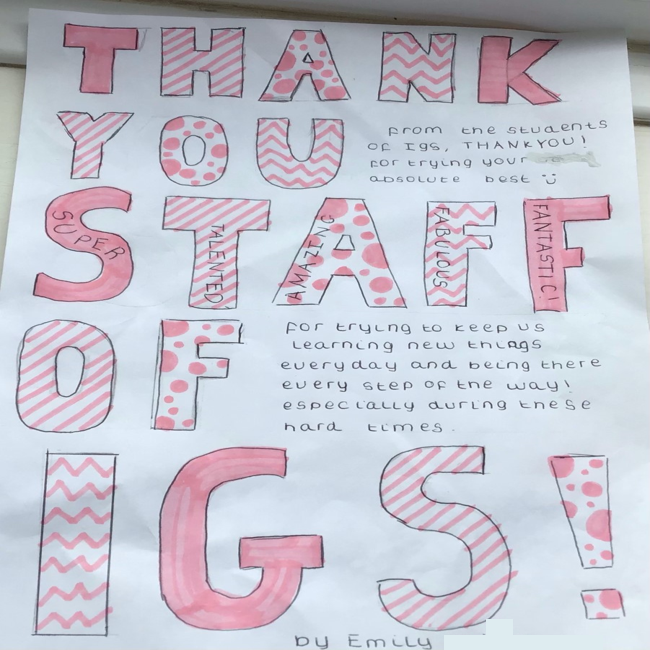 THANK
YOU
from the students
of IGS, THANKYOU!
for trying your
absolute best
STAFF
SUPER
TALENTED
AMAZING
FABULOUS
FANTASTIC!
OF
for trying to keep us
learning new things
everyday and being there
every step of the way!
especially during these
hard times.
IGS!
by Emily